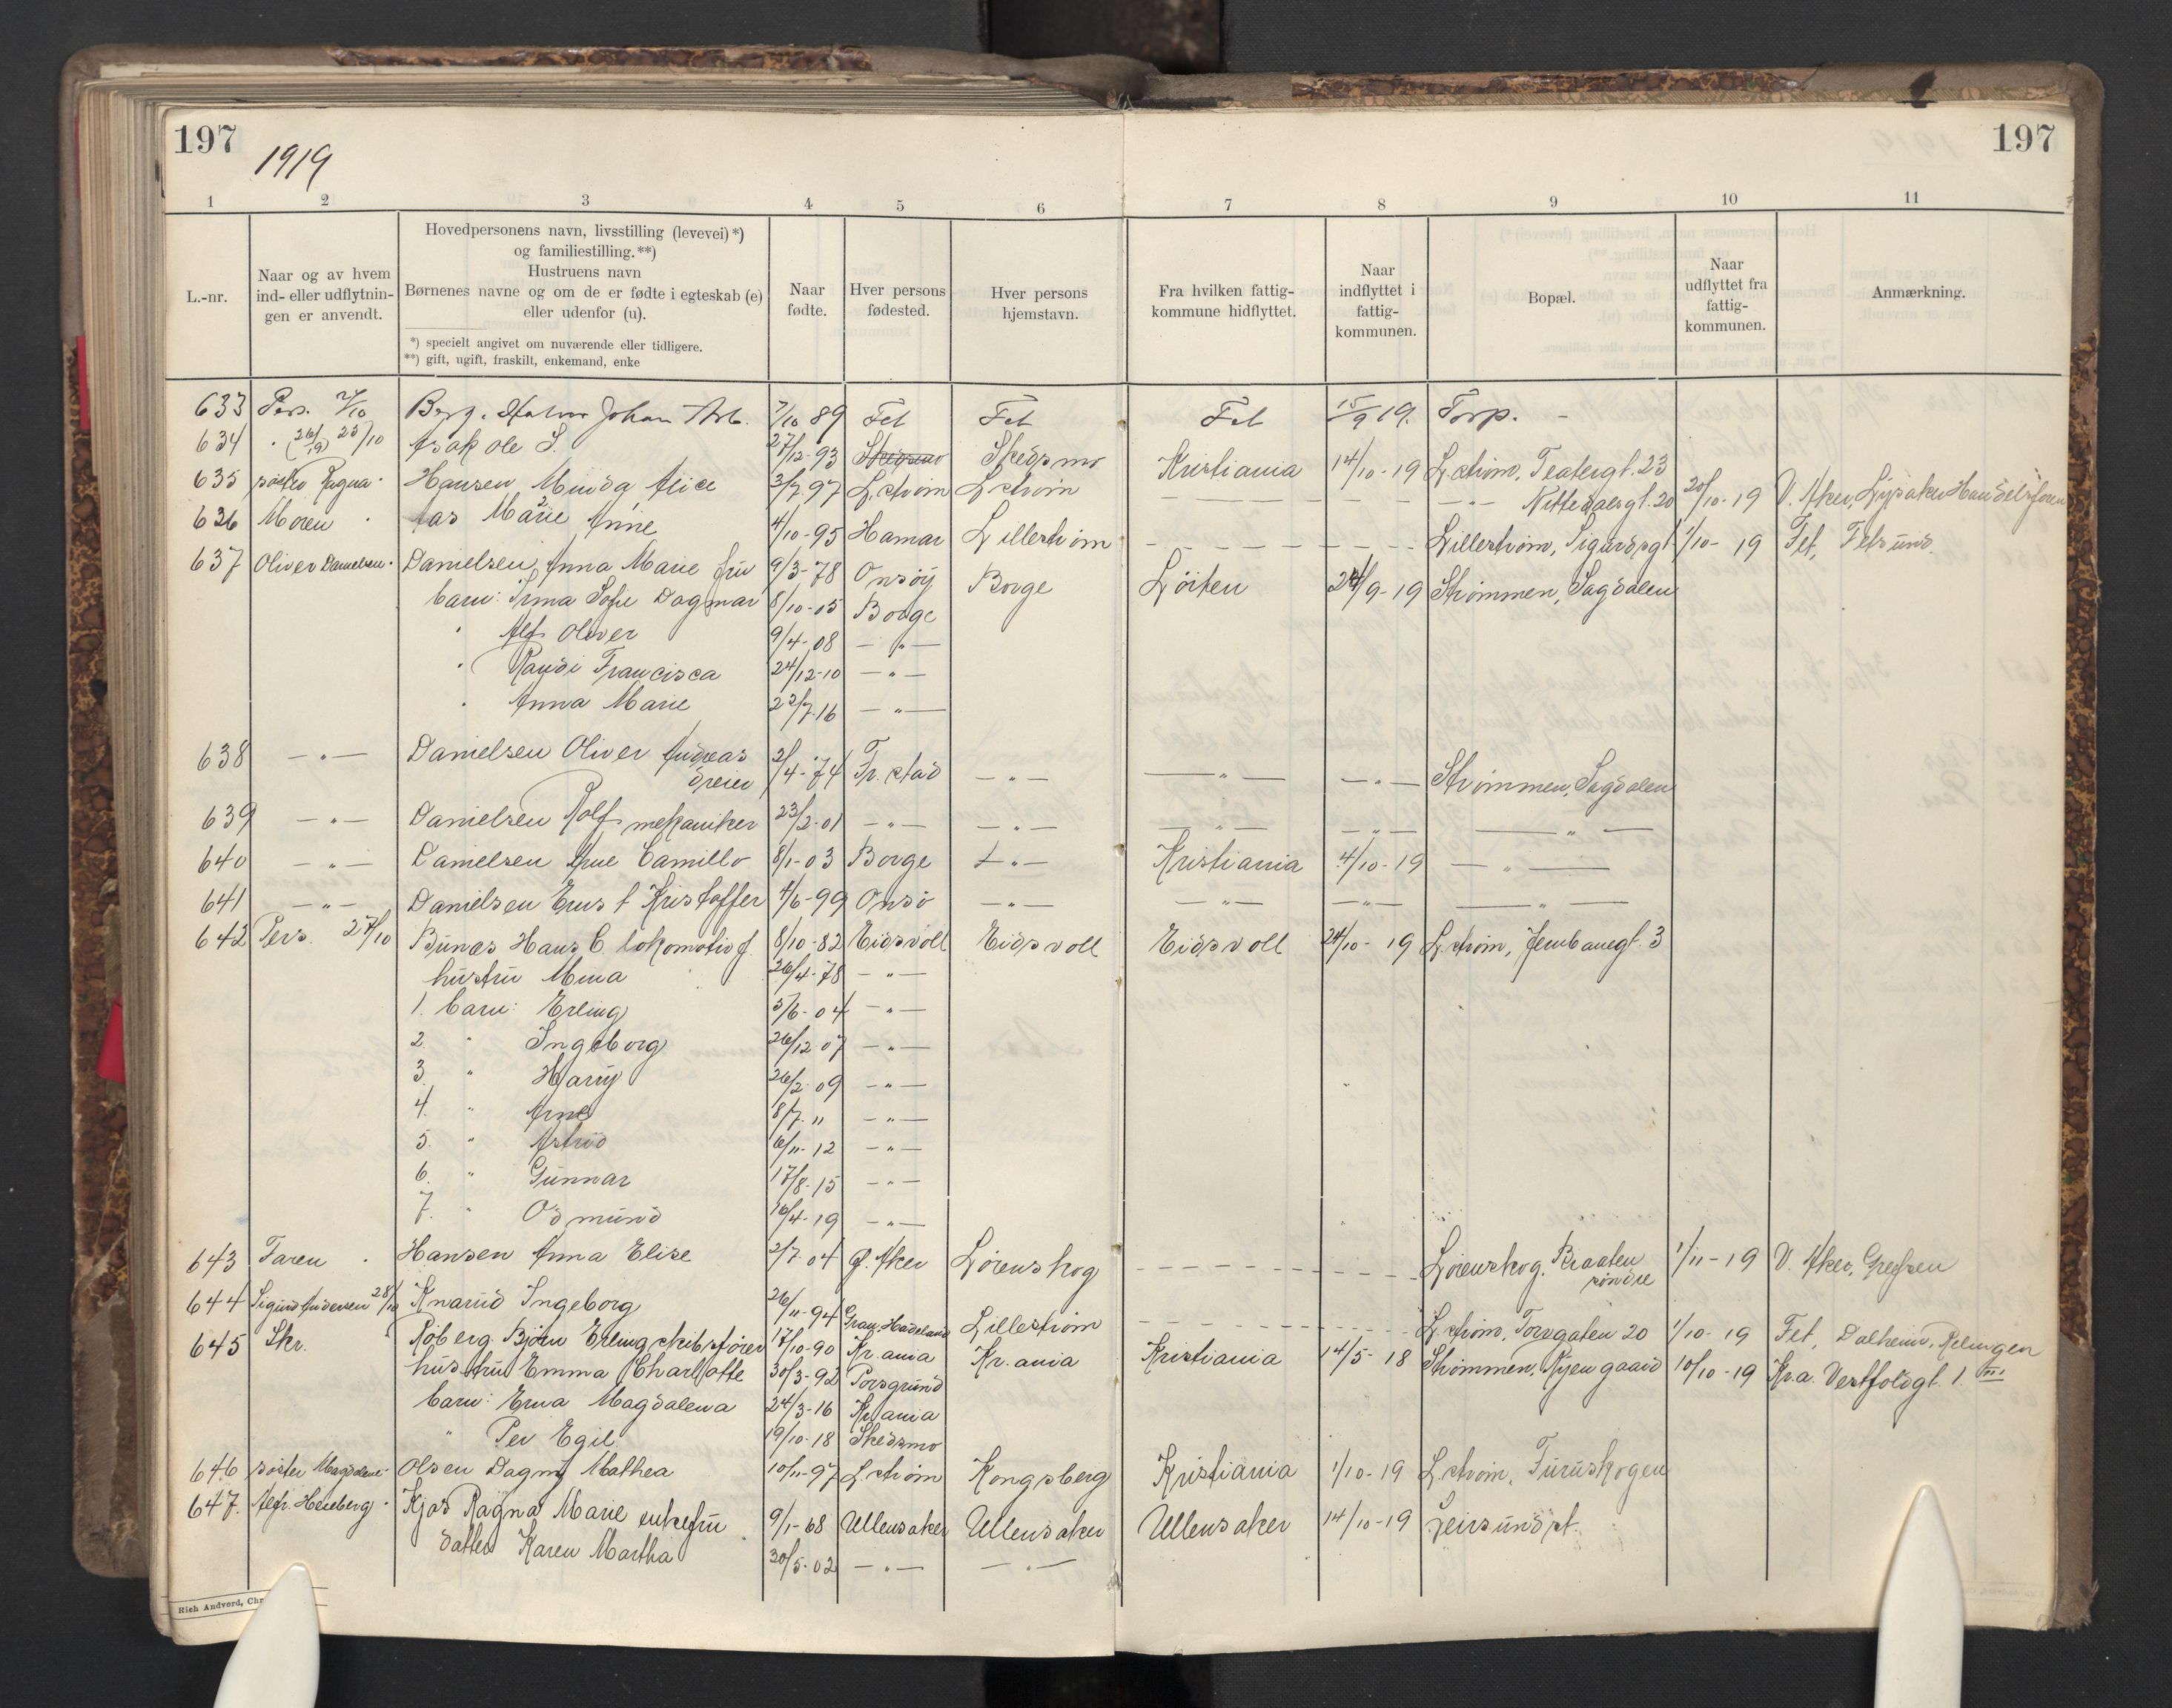 197
197
1919
1 2 3 4 5 6 7 8 9 10 11
L.-nr.
Naar og av hvem ind- eller udflytnin- gen er anvendt.
Hovedpersonens navn, livsstilling (levevei) *)
og familiestilling. **)
Hustruens navn
Børnenes navne og om de er fødte i egteskab (e)
eller udenfor (u).
*) specielt angivet om nuværende eller tidligere.
**) gift, ugift, fraskilt, enkemand, enke
Naar fødte.
Hver persons fødested.
Hver persons hjemstavn.
Fra hvilken fattig- kommune hidflyttet.
Naar indflyttet i fattig- kommunen.
Bopæl.
Naar udflyttet fra fattig- kommunen.
Anmærkning.
633 Pers. Berg, Johan Arb. 7/10 89 Fet Fet Fet 15/9 19. Torp. -
634 " (26/9) 25/10 Isak Ole S. 27/12-93 Skedsmo Skedsmo Kristiania 14/10-19 L.strøm, Teatergt. 23
635 søster Ragna Hansen Alice 3/7-97 L.strøm L.strøm — — — — " — Nittedalsgt. 20 20/10-19 V. Aker, Lysaker
636 Moren " Aas Marie Anne 4/10-95 Hamar Lillestrøm - - - - Lillestrøm, Sigurdsgt. 1/10-19 Fet, Fetsund.
637 Oliver Danielsen Danielsen Anna Marie fru 9/3-78 Onsøy Borge Løiten 24/9-19 Strømmen, Sagdalen
barn: Irma Sofie Dagmar 8/10-05 Borge
" Alf Oliver 9/4-08 — " —
" Randi Francisca 24/12-10 — " —
" Anna Marie 22/7-16 — " —
638 — " — Danielsen Oliver Andreas 2/4-74 Fr.stad — " — — " — — " — Strømmen, Sagdalen
dreier
639 — " — Danielsen Rolf mekaniker 23/2-01 — " — — " — — " — — " — — " —
640 — " — Danielsen Arne Camillo 8/1-03 Borge — " — Kristiania 4/10-19 — " —
641 — " — Danielsen Ernst Kristoffer 4/6-99 Onsø — " — — " — — " — — " —
642 Pers. 27/10 Bunæs Hans C. lokomotivf. 8/10-82 Eidsvoll Eidsvoll Eidsvoll 24/10-19 L.strøm, Jernbanegt. 3
hustru Mina 26/4-78 — " —
1. barn: Erling 5/6-04 — " —
2. " Ingeborg 26/12-07 — " —
3. " Harry 26/2-09 — " —
4. " Arne 8/7-11 — " —
5. " Astrid 6/11-12 — " —
6. " Gunnar 17/8-15 — " —
7. " Odmund 16/4-19 — " —
643 Faren " Hansen Anna Elise 2/7-04 Ø. Aker Lørenskog - - - - Lørenskog, Braaten 1/11-19 V. Aker, Grefsen
søndre
644 Sigurd Andersen 28/10 Knarud Ingeborg 26/11-94 Gran, Hadeland Lillestrøm - - - - L.strøm, Torvgaten 20 1/10-19 Fet, Dalheim, Relingen
645 Skr. Røberg Bjørn Erling skibsfører 17/10-90 Kr.ania Kr.ania Kristiania 14/5-18 Strømmen, Ryengaard 10/10-19 Kr.a. Vestfoldgt. 1. III
hustru Emma Charlotte 30/3-92 Porsgrund
barn: Erna Magdalena 24/3-16 Kr.ania
" Per Egil 19/10-18 Skedsmo
646 søster Magdalene Olsen Dagny Mathea 10/11-97 L.strøm Kongsberg Kristiania 1/10-19 L.strøm, Furuskogen
647. Alfr. Kjos Ragna Marie enkefru 9/1-68 Ullensaker Ullensaker Ullensaker 14/10-19 Leirsund st.
datter Karen Martha 30/5-02 — " — — " —
Rich Andvord, Chr